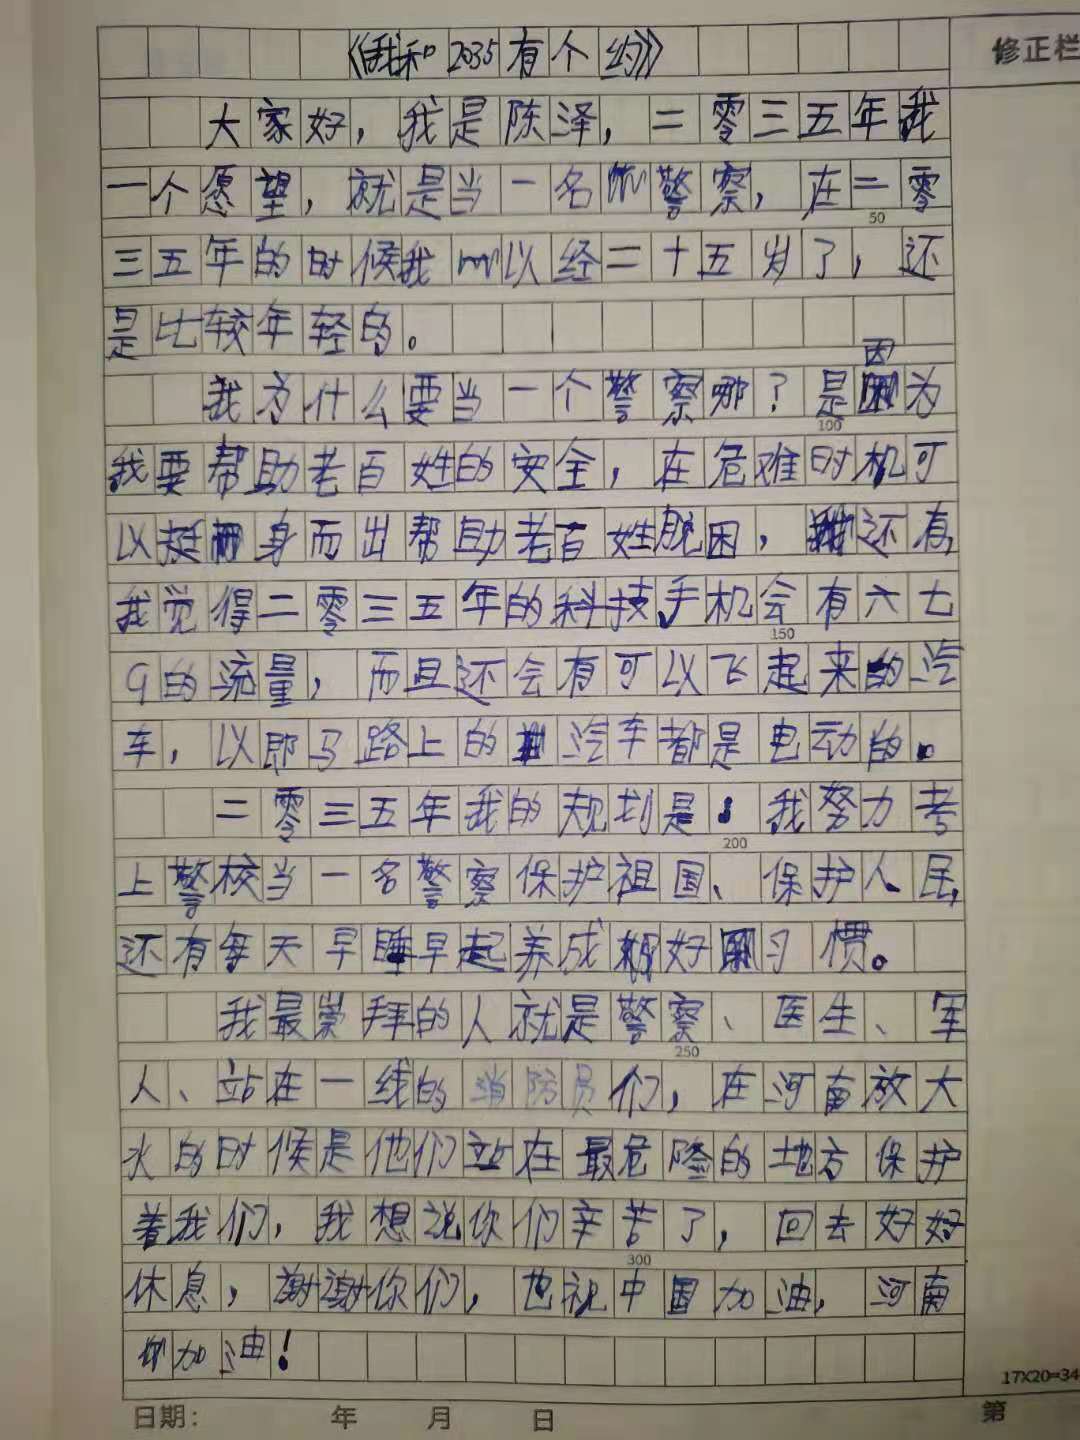 修正栏
《我和2035有个约》
大家好，我是陈泽，二零三五年我
一个愿望，就是当一名警察，在二零
50
三五年的时候我以经二十五岁了，还
是比较年轻的。
因
我为什么要当一个警察哪？是为
100
我要帮助老百姓的安全，在危难时机可
以挺身而出帮助老百姓脱困，还有，
我觉得二零三五年的科技手机会有六七
150
G的流量，而且还会有可以飞起来的汽
车，以即马路上的汽车都是电动的。
二零三五年我的规划是：我努力考
200
上警校当一名警察保护祖国、保护人民，
还有每天早睡早起养成好习惯。
我最崇拜的人就是警察、医生、军
250
人、站在一线的消防员们，在河南放大
水的时候是他们站在最危险的地方保护
着我们，我想说你们辛苦了，回去好好
300
休息，谢谢你们，也祝中国加油，河南
加油！
17X20=34
日期： 年 月 日
第